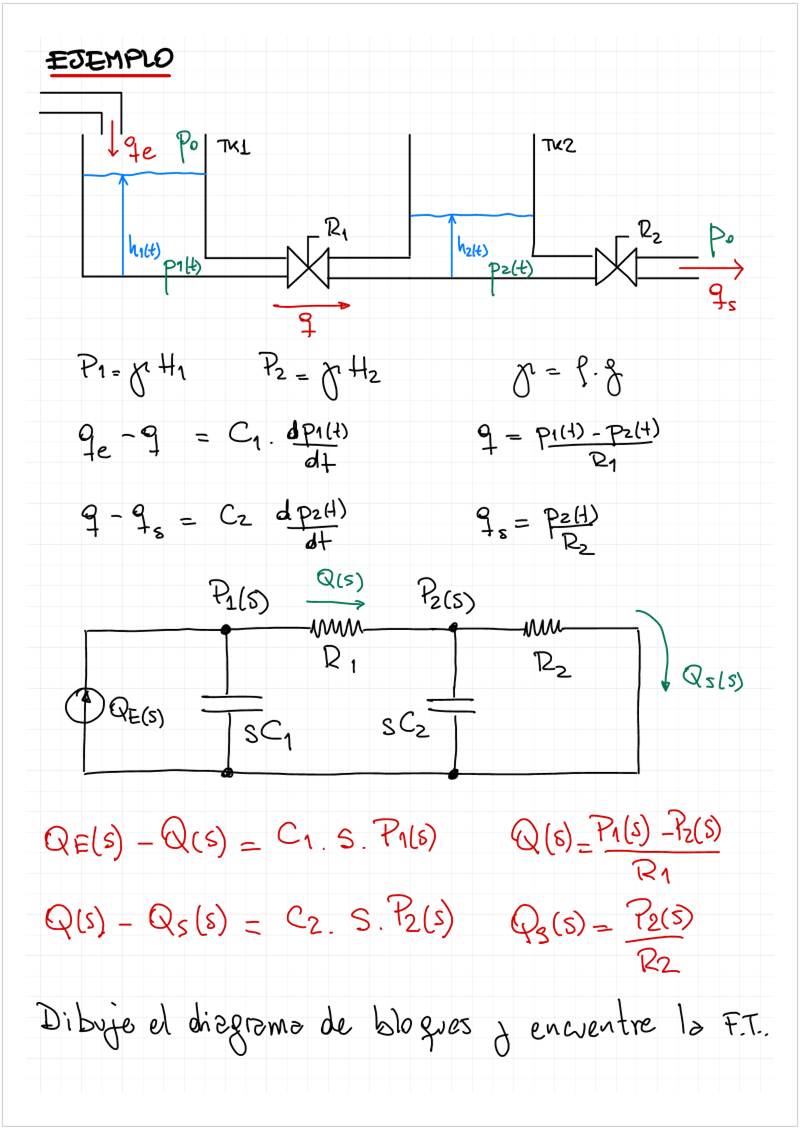 EJEMPLO
qe p0 TK1 TK2
h1(t) p1(t) R1 h2(t) p2(t) R2 p0
q qs
P1 = γ H1 P2 = γ H2 γ = ρ.g
qe - q = C1. dp1(t)/dt q = p1(t) - p2(t)/R1
q - qs = C2 dp2(t)/dt qs = p2(t)/R2
P1(s) Q(s) P2(s)
R1 R2
QE(s) sC1 sC2 Qs(s)
QE(s) - Q(s) = C1. s. P1(s) Q(s) = P1(s) - P2(s)/R1
Q(s) - Qs(s) = C2. s. P2(s) Qs(s) = P2(s)/R2
Dibuje el diagrama de bloques y encuentre la F.T..